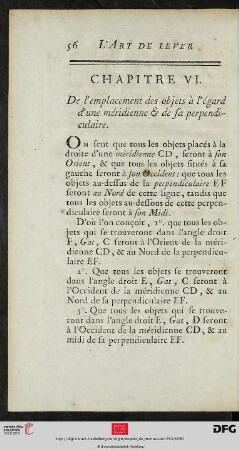 56 L'ART DE LEVER
CHAPITRE VI.
De l'emplacement des objets à l'égard
d'une méridienne & de sa perpendi-
culaire.
ON sent que tous les objets placés à la
droite d'une méridienne CD, seront à son
Orient, & que tous les objets situés à sa
gauche seront à son Occident: que tous les
objets au-dessus de la perpendiculaire EF
seront au Nord de cette ligne, tandis que
tous les objets au-dessous de cette perpen-
diculaire seront à son Midi.
D'où l'on conçoit, 1°. que tous les ob-
jets qui se trouveront dans l'angle droit
F, Gat, C seront à l'Orient de la méri-
dienne CD, & au Nord de la perpendicu-
laire EF.
2°. Que tous les objets se trouveront
dans l'angle droit E, Gat, C seront à
l'Occident de la méridienne CD, & au
Nord de sa perpendiculaire EF.
3°. Que tous les objets qui se trouve-
ront dans l'angle droit E, Gat, D seront
à l'Occident de la méridienne CD, & au
midi de sa perpendiculaire EF.
DFG